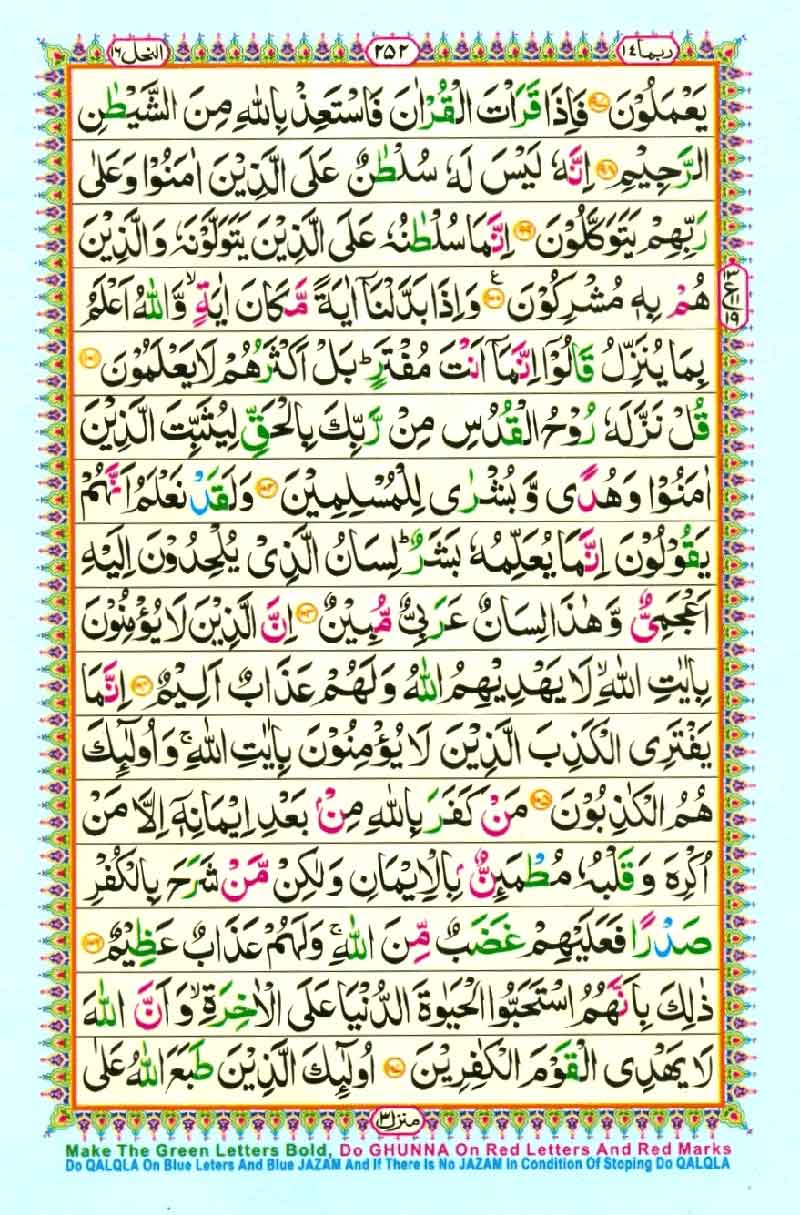 ربما ١٤
٢٥٢
النحل ١٦
يَعْمَلُوْنَ ﴿٩٧﴾ فَاِذَا قَرَاْتَ الْقُرْاٰنَ فَاسْتَعِذْ بِاللّٰهِ مِنَ الشَّيْطٰنِ
الرَّجِيْمِ ﴿٩٨﴾ اِنَّهٗ لَيْسَ لَهٗ سُلْطٰنٌ عَلَى الَّذِيْنَ اٰمَنُوْا وَعَلٰى
رَبِّهِمْ يَتَوَكَّلُوْنَ ﴿٩٩﴾ اِنَّمَا سُلْطٰنُهٗ عَلَى الَّذِيْنَ يَتَوَلَّوْنَهٗ وَالَّذِيْنَ
هُمْ بِهٖ مُشْرِكُوْنَ ﴿١٠٠﴾ ع وَاِذَا بَدَّلْنَاۤ اٰيَةً مَّكَانَ اٰيَةٍ ۙ وَّاللّٰهُ اَعْلَمُ
٣
ع ١١
١٩
بِمَا يُنَزِّلُ قَالُوْۤا اِنَّمَاۤ اَنْتَ مُفْتَرٍ ؕ بَلْ اَكْثَرُهُمْ لَا يَعْلَمُوْنَ ﴿١٠١﴾
قُلْ نَزَّلَهٗ رُوْحُ الْقُدُسِ مِنْ رَّبِّكَ بِالْحَقِّ لِيُثَبِّتَ الَّذِيْنَ
اٰمَنُوْا وَهُدًى وَّبُشْرٰى لِلْمُسْلِمِيْنَ ﴿١٠٢﴾ وَلَقَدْ نَعْلَمُ اَنَّهُمْ
يَقُوْلُوْنَ اِنَّمَا يُعَلِّمُهٗ بَشَرٌ ؕ لِسَانُ الَّذِيْ يُلْحِدُوْنَ اِلَيْهِ
اَعْجَمِيٌّ وَّهٰذَا لِسَانٌ عَرَبِيٌّ مُّبِيْنٌ ﴿١٠٣﴾ اِنَّ الَّذِيْنَ لَا يُؤْمِنُوْنَ
بِاٰيٰتِ اللّٰهِ ۙ لَا يَهْدِيْهِمُ اللّٰهُ وَلَهُمْ عَذَابٌ اَلِيْمٌ ﴿١٠٤﴾ اِنَّمَا
يَفْتَرِى الْكَذِبَ الَّذِيْنَ لَا يُؤْمِنُوْنَ بِاٰيٰتِ اللّٰهِ ۚ وَاُولٰٓئِكَ
هُمُ الْكٰذِبُوْنَ ﴿١٠٥﴾ مَنْ كَفَرَ بِاللّٰهِ مِنْۢ بَعْدِ اِيْمَانِهٖۤ اِلَّا مَنْ
اُكْرِهَ وَقَلْبُهٗ مُطْمَئِنٌّۢ بِالْاِيْمَانِ وَلٰكِنْ مَّنْ شَرَحَ بِالْكُفْرِ
صَدْرًا فَعَلَيْهِمْ غَضَبٌ مِّنَ اللّٰهِ ۚ وَلَهُمْ عَذَابٌ عَظِيْمٌ ﴿١٠٦﴾
ذٰلِكَ بِاَنَّهُمُ اسْتَحَبُّوا الْحَيٰوةَ الدُّنْيَا عَلَى الْاٰخِرَةِ ۙ وَاَنَّ اللّٰهَ
لَا يَهْدِى الْقَوْمَ الْكٰفِرِيْنَ ﴿١٠٧﴾ اُولٰٓئِكَ الَّذِيْنَ طَبَعَ اللّٰهُ عَلٰى
منزل ٣
Make The Green Letters Bold, Do GHUNNA On Red Letters And Red Marks
Do QALQLA On Blue Leters And Blue JAZAM And If There Is No JAZAM In Condition Of Stoping Do QALQLA